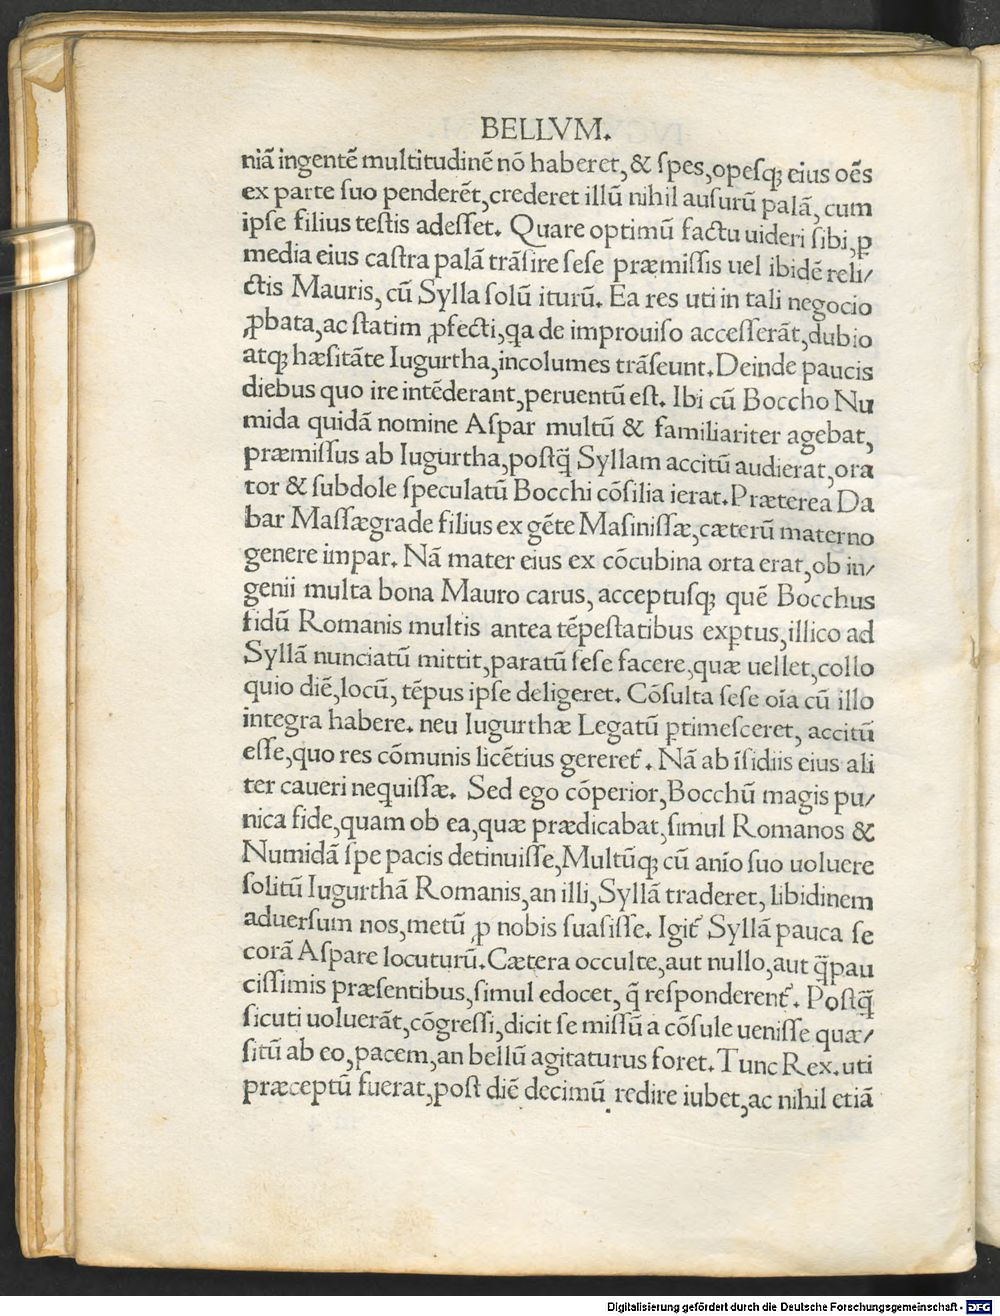 BELLVM.
niā ingentē multitudinē nō haberet, & ſpes, opeſqꝫ eius oēs
ex parte ſuo penderēt, crederet illū nihil auſurū palā, cum
ipſe filius teſtis adeſſet. Quare optimū factu uideri ſibi, ꝑ
media eius caſtra palā trāſire ſeſe præmiſſis uel ibidē reli/
ctis Mauris, cū Sylla ſolū iturū. Ea res uti in tali negocio
ꝓbata, ac ſtatim ꝓfecti, qa de improuiſo acceſſerāt, dubio
atqꝫ hæſitāte Iugurtha, incolumes trāſeunt. Deinde paucis
diebus quo ire intēderant, peruentū eſt. Ibi cū Boccho Nu
mida quidā nomine Aſpar multū & familiariter agebat,
præmiſſus ab Iugurtha, poſtq̄ Syllam accitū audierat, ora
tor & ſubdole ſpeculatū Bocchi cōſilia ierat. Præterea Da
bar Maſſægrade filius ex gēte Maſiniſſæ, cæterū materno
genere impar. Nā mater eius ex cōcubina orta erat, ob in/
genii multa bona Mauro carus, acceptuſqꝫ quē Bocchus
fidū Romanis multis antea tēpeſtatibus exꝑtus, illico ad
Syllā nunciatū mittit, paratū ſeſe facere, quæ uellet, collo
quio diē, locū, tēpus ipſe deligeret. Cōſulta ſeſe oīa cū illo
integra habere. neu Iugurthæ Legatū ꝑtimeſceret, accitū
eſſe, quo res cōmunis licētius gereret᷑. Nā ab īſidiis eius ali
ter caueri nequiſſæ. Sed ego cōperior, Bocchū magis pu/
nica fide, quam ob ea, quæ prædicabat, ſimul Romanos &
Numidā ſpe pacis detinuiſſe, Multūqꝫ cū anīo ſuo uoluere
ſolitū Iugurthā Romanis, an illi, Syllā traderet, libidinem
aduerſum nos, metū ꝓ nobis ſuaſiſſe. Igit᷑ Syllā pauca ſe
corā Aſpare locuturū. Cætera occulte, aut nullo, aut q̄pau
ciſſimis præſentibus, ſimul edocet, q̄ reſponderent᷑. Poſtq̄
ſicuti uoluerāt, cōgreſſi, dicit ſe miſſū a cōſule ueniſſe quæ/
ſitū ab eo, pacem, an bellū agitaturus foret. Tunc Rex. uti
præceptū fuerat, poſt diē decimū redire iubet, ac nihil etiā
Digitalisierung gefördert durch die Deutsche Forschungsgemeinschaft - DFG